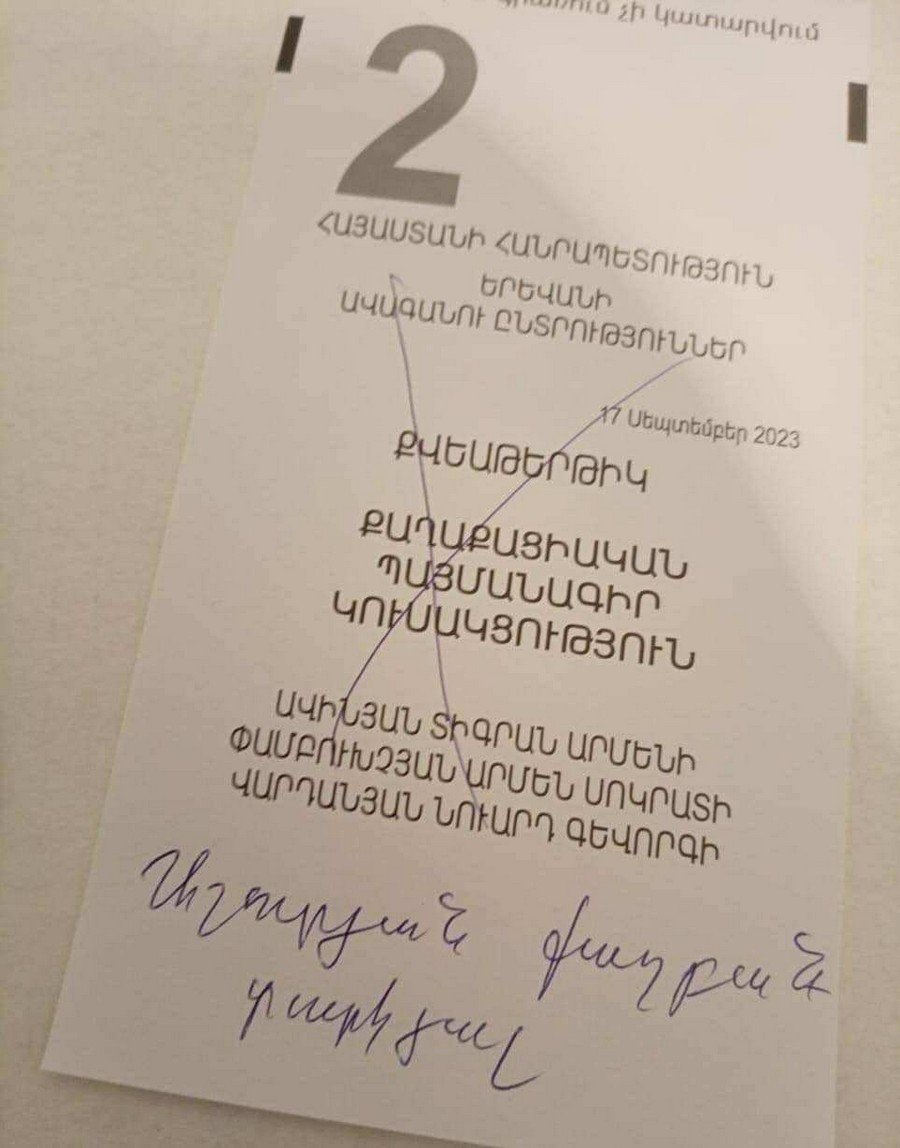 գրառում չի կատարվում
2
ՀԱՅԱՍՏԱՆԻ ՀԱՆՐԱՊԵՏՈՒԹՅՈՒՆ
ԵՐԵՎԱՆԻ
ԱՎԱԳԱՆՈՒ ԸՆՏՐՈՒԹՅՈՒՆՆԵՐ
17 Սեպտեմբեր 2023
ՔՎԵԱԹԵՐԹԻԿ
ՔԱՂԱՔԱՑԻԱԿԱՆ
ՊԱՅՄԱՆԱԳԻՐ
ԿՈՒՍԱԿՑՈՒԹՅՈՒՆ
ԱՎԻՆՅԱՆ ՏԻԳՐԱՆ ԱՐՄԵՆԻ
ՓԱՄԲՈՒԽՉՅԱՆ ԱՐՄԵՆ ՍՈԿՐԱՏԻ
ՎԱՐԴԱՆՅԱՆ ՆՈՒԱՐԴ ԳԵՎՈՐԳԻ